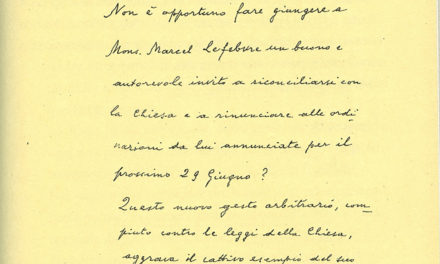 Non è opportuno fare giungere a
Mons. Marcel Lefebvre un buono e
autorevole invito a riconciliarsi con
la Chiesa e a rinunciare alle ordi
nazioni da lui annunciate per il
prossimo 29 Giugno ?
Questo nuovo gesto arbitrario, com
piuto contro le leggi della Chiesa,
aggrava il cattivo esempio del suo